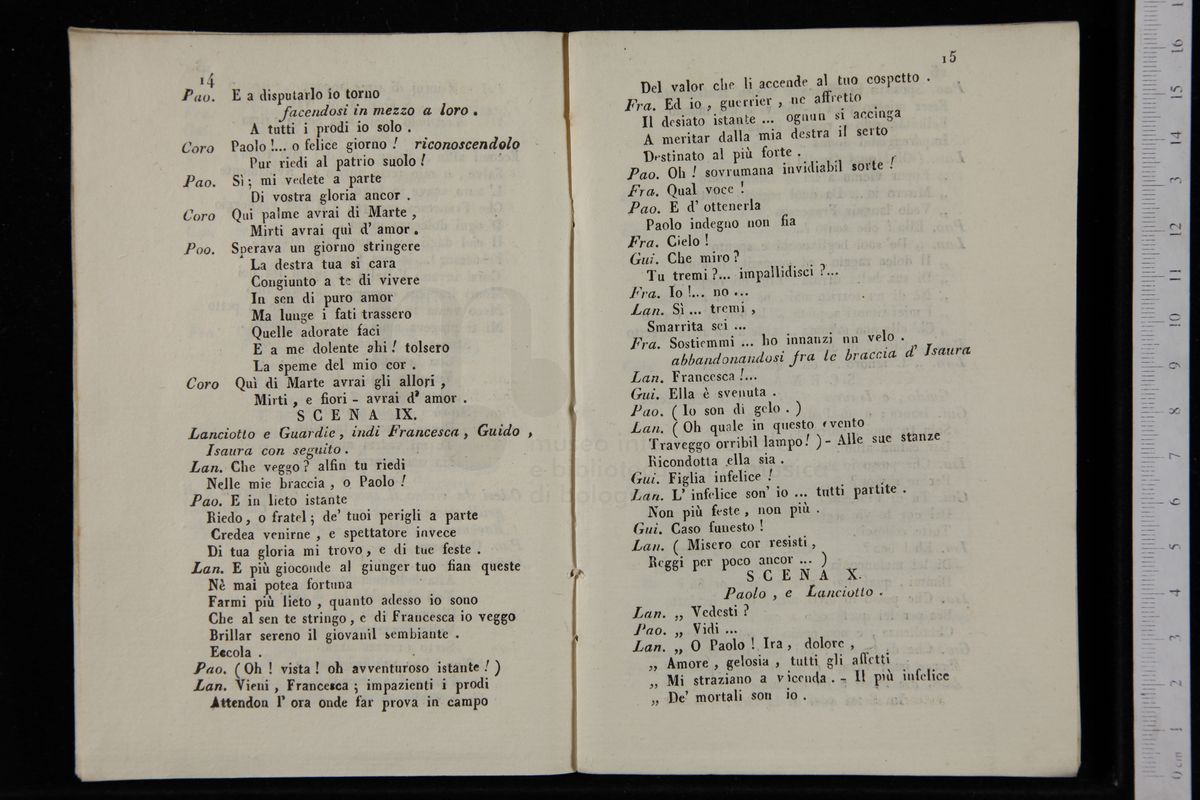 14
Pao. E a disputarlo io torno
facendosi in mezzo a loro .
A tutti i prodi io solo .
Coro Paolo !... o felice giorno ! riconoscendolo
Pur riedi al patrio suolo !
Pao. Sì ; mi vedete a parte
Di vostra gloria ancor .
Coro Qui palme avrai di Marte ,
Mirti avrai quì d' amor .
Poo. Sperava un giorno stringere
La destra tua sì cara
Congiunto a te di vivere
In sen di puro amor
Ma lunge i fati trassero
Quelle adorate faci
E a me dolente ahi ! tolsero
La speme del mio cor .
Coro Quì di Marte avrai gli allori ,
Mirti , e fiori - avrai d' amor .
SCENA IX.
Lanciotto e Guardie , indi Francesca , Guido ,
Isaura con seguito .
Lan. Che veggo ? alfin tu riedi
Nelle mie braccia , o Paolo !
Pao. E in lieto istante
Riedo, o fratel ; de' tuoi perigli a parte
Credea venirne , e spettatore invece
Di tua gloria mi trovo , e di tue feste .
Lan. E più gioconde al giunger tuo fian queste
Nè mai potea fortuna
Farmi più lieto , quanto adesso io sono
Che al sen te stringo , e di Francesca io veggo
Brillar sereno il giovanil sembiante .
Eccola .
Pao. ( Oh ! vista ! oh avventuroso istante ! )
Lan. Vieni , Francesca ; impazienti i prodi
Attendon l' ora onde far prova in campo
15
Del valor che li accende al tuo cospetto .
Fra. Ed io , guerrier , ne affretto
Il desiato istante ... ognun si accinga
A meritar dalla mia destra il serto
Destinato al più forte .
Pao. Oh ! sovrumana invidiabil sorte !
Fra. Qual voce !
Pao. E d' ottenerla
Paolo indegno non fia
Fra. Cielo !
Gui. Che miro ?
Tu tremi ?... impallidisci ?...
Fra. Io !... no ...
Lan. Sì ... tremi ,
Smarrita sei ...
Fra. Sostiemmi ... ho innanzi un velo .
abbandonandosi fra le braccia d' Isaura
Lan. Francesca !...
Gui. Ella è svenuta .
Pao. ( Io son di gelo . )
Lan. ( Oh quale in questo evento
Traveggo orribil lampo ! ) - Alle sue stanze
Ricondotta ella sia .
Gui. Figlia infelice !
Lan. L' infelice son' io ... tutti partite .
Non più feste , non più .
Gui. Caso funesto !
Lan. ( Misero cor resisti ,
Reggi per poco ancor ... )
SCENA X.
Paolo , e Lanciotto .
Lan. „ Vedesti ?
Pao. „ Vidi ...
Lan. „ O Paolo ! Ira , dolore ,
„ Amore , gelosia , tutti gli affetti
„ Mi straziano a vicenda . - Il più infelice
„ De' mortali son io .